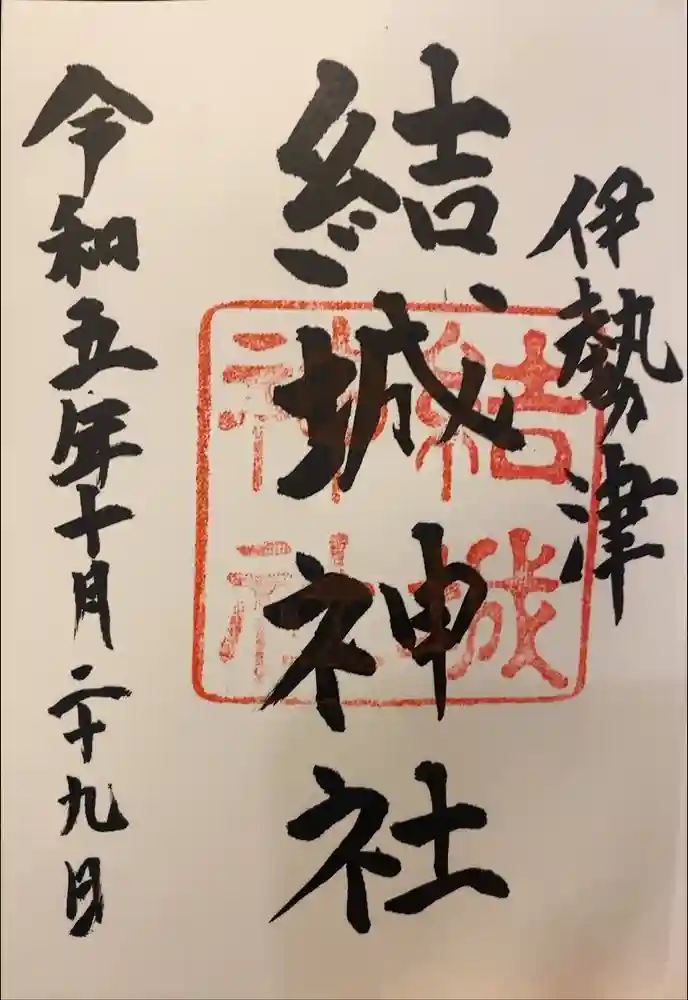 伊勢津
結城神社
令和五年十月二十九日
結城
神社